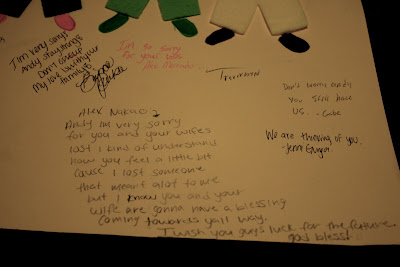 I'm very sorry
Andy stay strong
Don't give up
My love is with your
family
I'm so sorry
for your loss.
Don't worry andy
you still have
us. - Gabe
We are thinking of you.
-Jenn
Alex
Andy im very sorry
for you and your wifes
lost I kind of understand
how you feel a little bit
cause I lost someone
that meant alot to me
but I know you and your
wife are gonna have a blessing
coming towards yall way.
I wish you guys luck for the future
god bless!